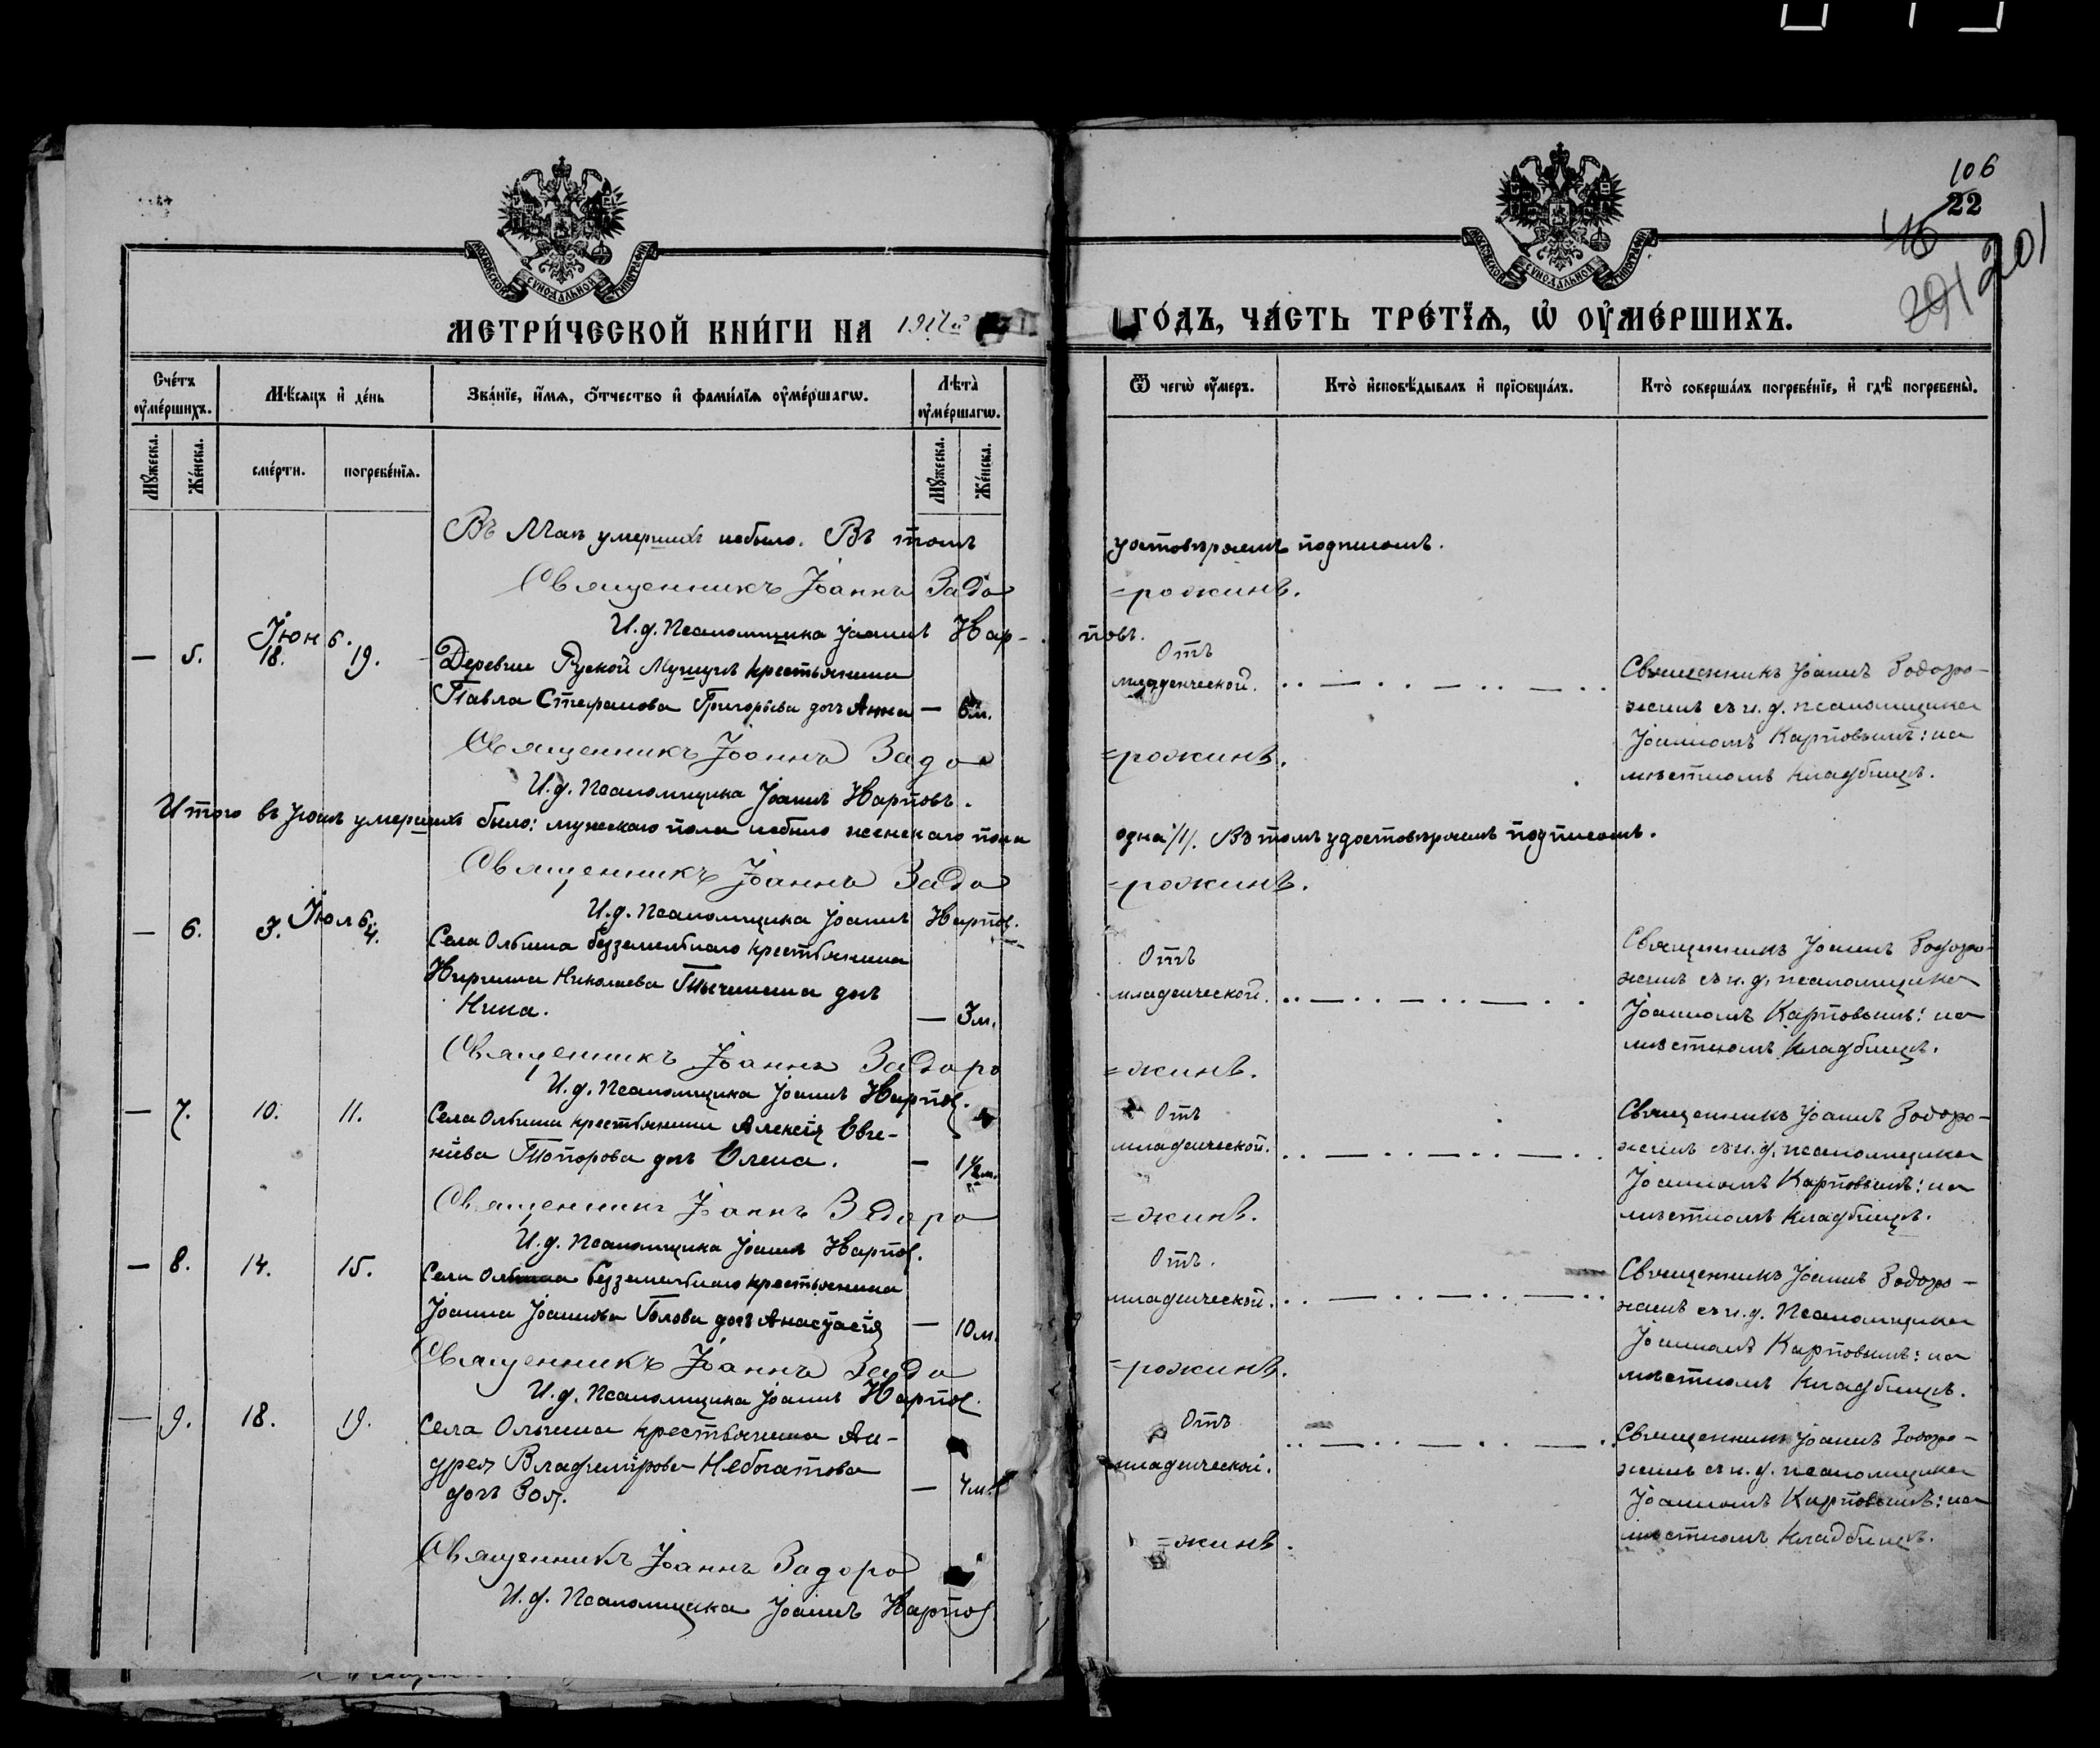 106
22
201
201
МОСКОВСКОЙ СѴНОДАЛЬНОЙ ТИПОГРАФІИ
МОСКОВСКОЙ СѴНОДАЛЬНОЙ ТИПОГРАФІИ
МЕТРИ́ЧЕСКОЙ КНИ́ГИ НА
ГО́ДЪ, ЧА́СТЬ ТРЕ́ТЇѦ, Ѡ҆ ОУ҆МЕ́РШИХЪ.
Сче́тъ оу҆ме́ршихъ.
Мꙋ́жеска.
Же́нска.
Мѣ́сяцъ и҆ де́нь
сме́рти.
погребе́нїѧ.
Зва́нїе, и҆́мѧ, ѻ҆́тчество и҆ фами́лїѧ оу҆ме́ршагѡ.
Лѣ́та̀ оу҆ме́ршагѡ.
Мꙋ́жеска.
Же́нска.
Ѿ чегѡ̀ оу҆́меръ.
Кто̀ и҆сповѣ́дывалъ и҆ прїѡбща́лъ.
Кто̀ соверша́лъ погребе́нїе, и҆ гдѣ̀ погребены̀.
Въ Маѣ умершихъ небыло. Въ томъ
удостовѣряемъ подписомъ.
Священникъ Іоаннъ Задо
=рожинъ.
И.д. Псаломщика Іоаннъ Кар-
повъ.
Іюнь.
— 5. 18. 19. Деревни Руской крестьянина
Павла Стефанова Григорьева дочь Анна — 6 м.
Отъ
младенческой.
Священникъ Іоаннъ Задоро-
жинъ съ и. д. псаломщика
Іоанномъ Карповымъ: на
мѣстномъ кладбищѣ.
Священникъ Іоаннъ Задо
=рожинъ.
И.д. Псаломщика Іоаннъ Карповъ.
Итого въ Іюнѣ умершихъ было: мужескаго пола небыло женскаго пола
одна /1/. Въ томъ удостовѣряемъ подписомъ.
Священникъ Іоаннъ Задо
=рожинъ.
И.д. Псаломщика Іоаннъ Карпов.
Іюль.
— 6. 3. 4. Села Ольгина безземельнаго крестьянина
Николаева дочь
Нина. — 3 м.
Отъ
младенческой.
Священникъ Іоаннъ Задоро-
жинъ съ и. д. псаломщика
Іоанномъ Карповымъ: на
мѣстномъ кладбищѣ.
Священникъ Іоаннъ Задоро
=жинъ.
И.д. Псаломщика Іоаннъ Карпов.
— 7. 10. 11. Села Ольгина крестьянина Алексія Евге-
нiева Топорова дочь Елена. — 1½ м.
Отъ
младенческой.
Священникъ Іоаннъ Задоро-
жинъ съ и. д. псаломщика
Іоанномъ Карповымъ: на
мѣстномъ кладбищѣ.
Священникъ Іоаннъ Задоро
=жинъ.
И.д. Псаломщика Іоаннъ Карпов.
— 8. 14. 15. Села Ольгина безземельнаго крестьянина
Іоанна Іоаннова Голова дочь Анастасія — 10 м.
Отъ.
младенческой.
Священникъ Іоаннъ Задоро-
жинъ съ и. д. Псаломщика
Іоанномъ Карповымъ: на
мѣстномъ кладбищѣ.
Священникъ Іоаннъ Задо
=рожинъ.
И.д. Псаломщика Іоаннъ Карпов.
— 9. 18. 19. Села Ольгина крестьянина Ан-
дрея Владимірова Небогатова
дочь Зоя. — 4 м.
Отъ
младенческой.
Священникъ Іоаннъ Задоро-
жинъ съ и. д. псаломщика
Іоанномъ Карповымъ: на
мѣстномъ кладбищѣ.
Священникъ Іоаннъ Задоро
=жинъ.
И.д. Псаломщика Іоаннъ Карпов